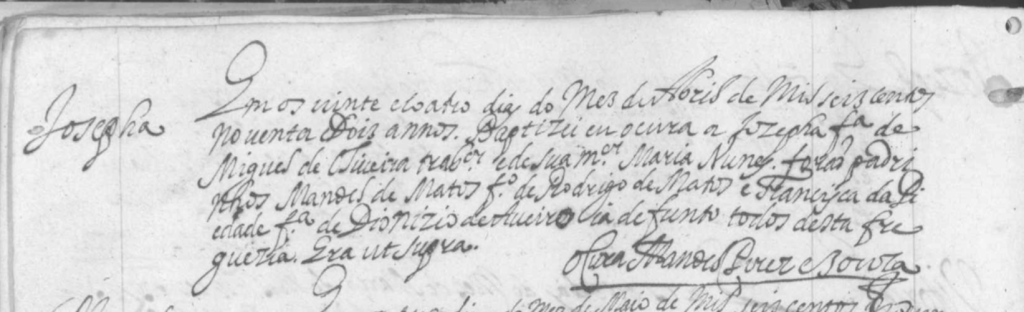 Josepha
Em os vinte e coatro dias do Mez de Abril de Mil seiz centos
noventa e Dois annos. Baptizei eu o cura a Jozepha f.ª de
Miguel de Oliveira trab.or e de sua m.er Maria Nunes. forão padri
nhos Manoel de Matos f.º de Rodrigo de Matos e Francisca da Pi
edade f.ª de Dionizio de Aveiro ia defunto todos desta fre
guezia. Era ut supra.
O Cura Manoel
do Mez de Maio de Mil seis centos